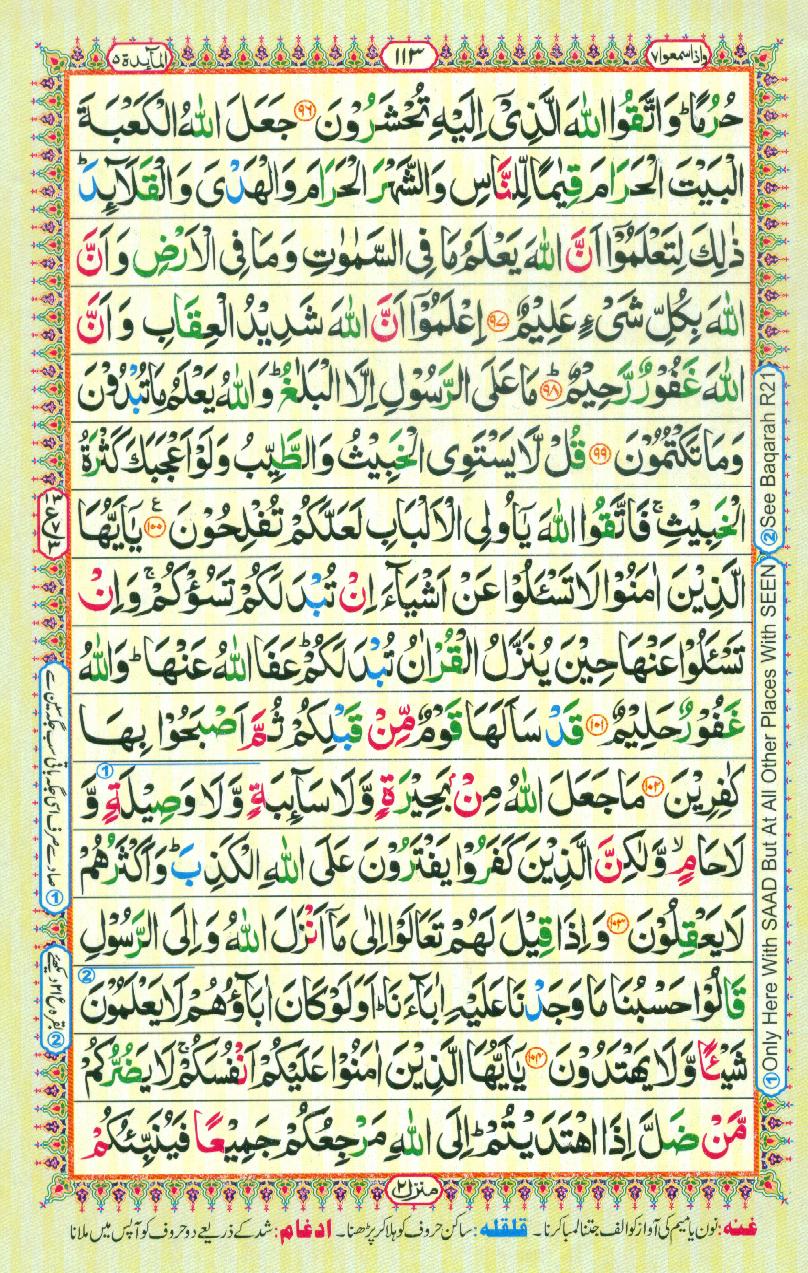 واذاسمعوا۷
۱۱۳
المآىِٕدة۵
حُرُمًا ؕ وَ اتَّقُوا اللّٰهَ الَّذِیْۤ اِلَیْهِ تُحْشَرُوْنَ ﴿۹۶﴾ جَعَلَ اللّٰهُ الْكَعْبَةَ
الْبَیْتَ الْحَرَامَ قِیٰمًا لِّلنَّاسِ وَ الشَّهْرَ الْحَرَامَ وَ الْهَدْیَ وَ الْقَلَآىِٕدَ ؕ
ذٰلِكَ لِتَعْلَمُوْۤا اَنَّ اللّٰهَ یَعْلَمُ مَا فِی السَّمٰوٰتِ وَ مَا فِی الْاَرْضِ وَ اَنَّ
اللّٰهَ بِكُلِّ شَیْءٍ عَلِیْمٌ ﴿۹۷﴾ اِعْلَمُوْۤا اَنَّ اللّٰهَ شَدِیْدُ الْعِقَابِ وَ اَنَّ
اللّٰهَ غَفُوْرٌ رَّحِیْمٌ ؕ ﴿۹۸﴾ مَا عَلَی الرَّسُوْلِ اِلَّا الْبَلٰغُ ؕ وَ اللّٰهُ یَعْلَمُ مَا تُبْدُوْنَ
وَ مَا تَكْتُمُوْنَ ﴿۹۹﴾ قُلْ لَّا یَسْتَوِی الْخَبِیْثُ وَ الطَّیِّبُ وَ لَوْ اَعْجَبَكَ كَثْرَةُ
الْخَبِیْثِ ۚ فَاتَّقُوا اللّٰهَ یٰۤاُولِی الْاَلْبَابِ لَعَلَّكُمْ تُفْلِحُوْنَ ﴿۱۰۰﴾ ع یٰۤاَیُّهَا
الَّذِیْنَ اٰمَنُوْا لَا تَسْـَٔلُوْا عَنْ اَشْیَآءَ اِنْ تُبْدَ لَكُمْ تَسُؤْكُمْ ۚ وَ اِنْ
تَسْـَٔلُوْا عَنْهَا حِیْنَ یُنَزَّلُ الْقُرْاٰنُ تُبْدَ لَكُمْ ؕ عَفَا اللّٰهُ عَنْهَا ؕ وَ اللّٰهُ
غَفُوْرٌ حَلِیْمٌ ﴿۱۰۱﴾ قَدْ سَاَلَهَا قَوْمٌ مِّنْ قَبْلِكُمْ ثُمَّ اَصْبَحُوْا بِهَا
كٰفِرِیْنَ ﴿۱۰۲﴾ مَا جَعَلَ اللّٰهُ مِنْۢ بَحِیْرَةٍ وَّ لَا سَآىِٕبَةٍ وَّ لَا وَصِیْلَةٍ وَّ
لَا حَامٍ ۙ وَّ لٰكِنَّ الَّذِیْنَ كَفَرُوْا یَفْتَرُوْنَ عَلَی اللّٰهِ الْكَذِبَ ؕ وَ اَكْثَرُهُمْ
لَا یَعْقِلُوْنَ ﴿۱۰۳﴾ وَ اِذَا قِیْلَ لَهُمْ تَعَالَوْا اِلٰی مَاۤ اَنْزَلَ اللّٰهُ وَ اِلَی الرَّسُوْلِ
قَالُوْا حَسْبُنَا مَا وَجَدْنَا عَلَیْهِ اٰبَآءَنَا ؕ اَوَ لَوْ كَانَ اٰبَآؤُهُمْ لَا یَعْلَمُوْنَ
شَیْـًٔا وَّ لَا یَهْتَدُوْنَ ﴿۱۰۴﴾ یٰۤاَیُّهَا الَّذِیْنَ اٰمَنُوْا عَلَیْكُمْ اَنْفُسَكُمْ ۚ لَا یَضُرُّكُمْ
مَّنْ ضَلَّ اِذَا اهْتَدَیْتُمْ ؕ اِلَی اللّٰهِ مَرْجِعُكُمْ جَمِیْعًا فَیُنَبِّئُكُمْ
منزل۲
② See Baqarah R21
① Only Here With SAAD But At All Other Places With SEEN
غنہ: نون یا میم کی آواز کو الف جتنا لمبا کرنا ۔ قلقلہ: ساکن حروف کو ہلا کر پڑھنا ۔ ادغام: شد کے ذریعے دو حروف کو آپس میں ملانا